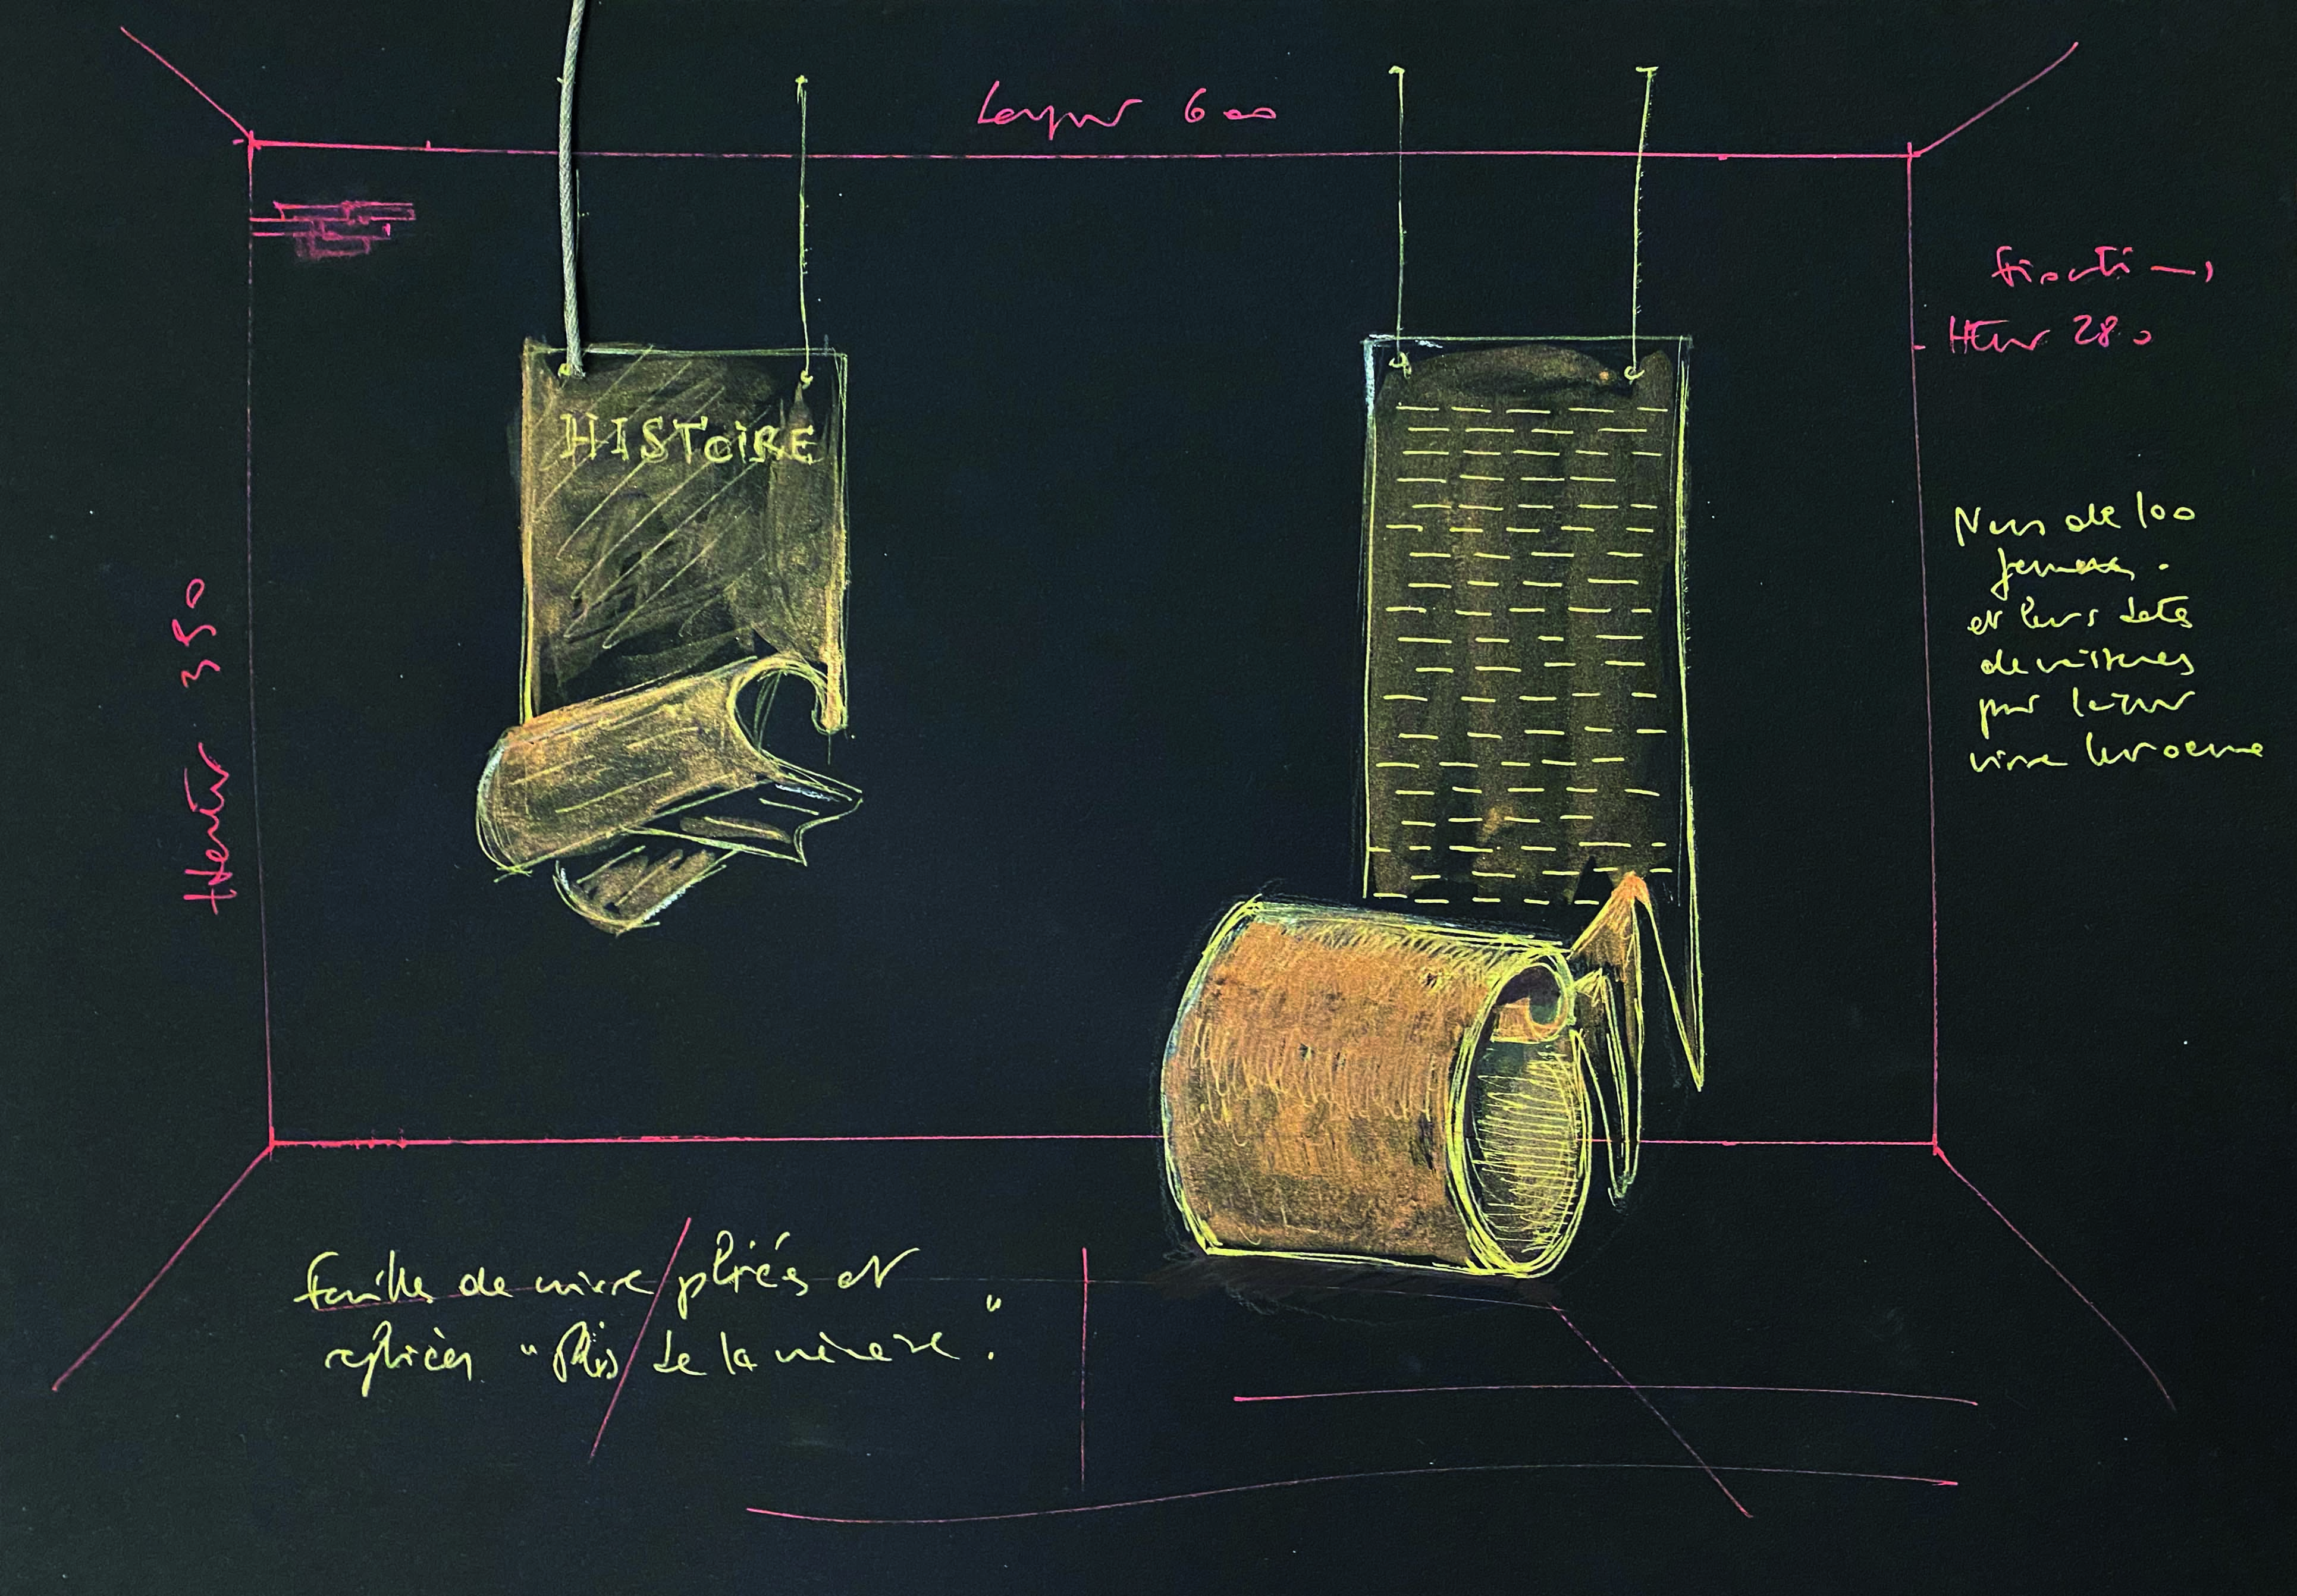 Largeur 600
fixation
Hteur 280
HISToiRE
Hauteur 350
Noms de 100
femmes.
et leurs dates
de naissances
pour
vivre leur oeuvre
feuilles de cuivre pliées et
repliées "Plis de la mémoire."